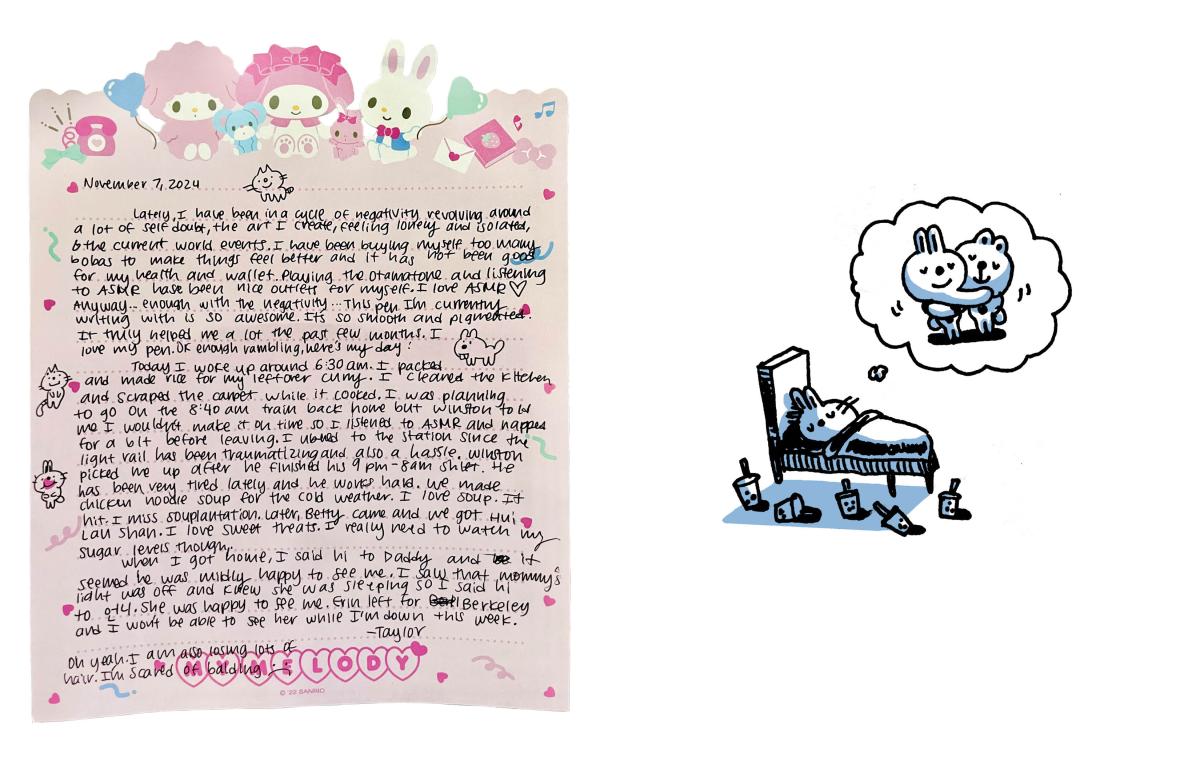 November 7, 2024
Lately, I have been in a cycle of negativity revolving around
a lot of self doubt, the art I create, feeling lonely and isolated,
& the current world events. I have been buying myself too many
bobas to make things feel better and it has not been good
for my health and wallet. Playing the otamatone and listening
to ASMR have been nice outlets for myself. I love ASMR ♡
Anyway... enough with the negativity... This pen I'm currently
writing with is so awesome. It's so smooth and pigmented.
It truly helped me a lot the past few months. I
love my pen. OK enough rambling, here's my day!
Today I woke up around 6:30 am. I packed
and made rice for my leftover curry. I cleaned the kitchen
and scraped the carpet while it cooked. I was planning
to go on the 8:40 am train back home but Winston told
me I wouldn't make it on time so I listened to ASMR and napped
for a bit before leaving. I ubered to the station since the
light rail has been traumatizing and also a hassle. Winston
picked me up after he finished his 9 pm-8am shift. He
has been very tired lately and he works hard. We made
chicken noodle soup for the cold weather. I love soup. It
hit. I miss souplantation. Later, Betty came and we got Hui
Lau Shan. I love sweet treats. I really need to watch my
sugar levels though.
When I got home, I said hi to Daddy and it
seemed he was mildly happy to see me. I saw that mommy's
light was off and knew she was sleeping so I said hi
to 624. She was happy to see me. Erin left for Berkeley
and I won't be able to see her while I'm down this week.
-Taylor
Oh yeah. I am also losing lots of
hair. I'm scared of balding. :-(
MY MELODY
© '22 SANRIO